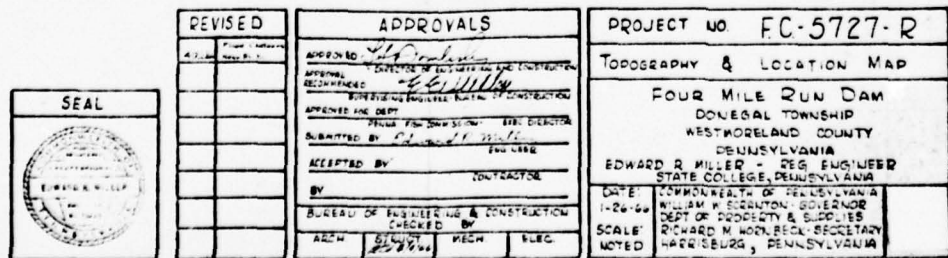 SEAL
EDWARD R. MILLER
REVISED
APPROVALS
APPROVED
DIRECTOR OF ENGINEERING AND CONSTRUCTION
APPROVAL
RECOMMENDED
SUPERVISING ENGINEER-BUREAU OF CONSTRUCTION
APPROVED FOR DEPT
PENNA FISH COMMISSION EXEC DIRECTOR
SUBMITTED BY Edward R Miller
ENGINEER
ACCEPTED BY
CONTRACTOR
BY
BUREAU OF ENGINEERING & CONSTRUCTION
CHECKED BY
ARCH STRUCT MECH ELEC.
PROJECT NO. F.C-5727-R
TOPOGRAPHY & LOCATION MAP
FOUR MILE RUN DAM
DONEGAL TOWNSHIP
WESTMORELAND COUNTY
PENNSYLVANIA
EDWARD R MILLER - REG ENGINEER
STATE COLLEGE, PENNSYLVANIA
DATE: 1-26-66
SCALE: NOTED
COMMONWEALTH OF PENNSYLVANIA
WILLIAM W SCRANTON - GOVERNOR
DEPT OF PROPERTY & SUPPLIES
RICHARD M HORNBECK-SECRETARY
HARRISBURG, PENNSYLVANIA